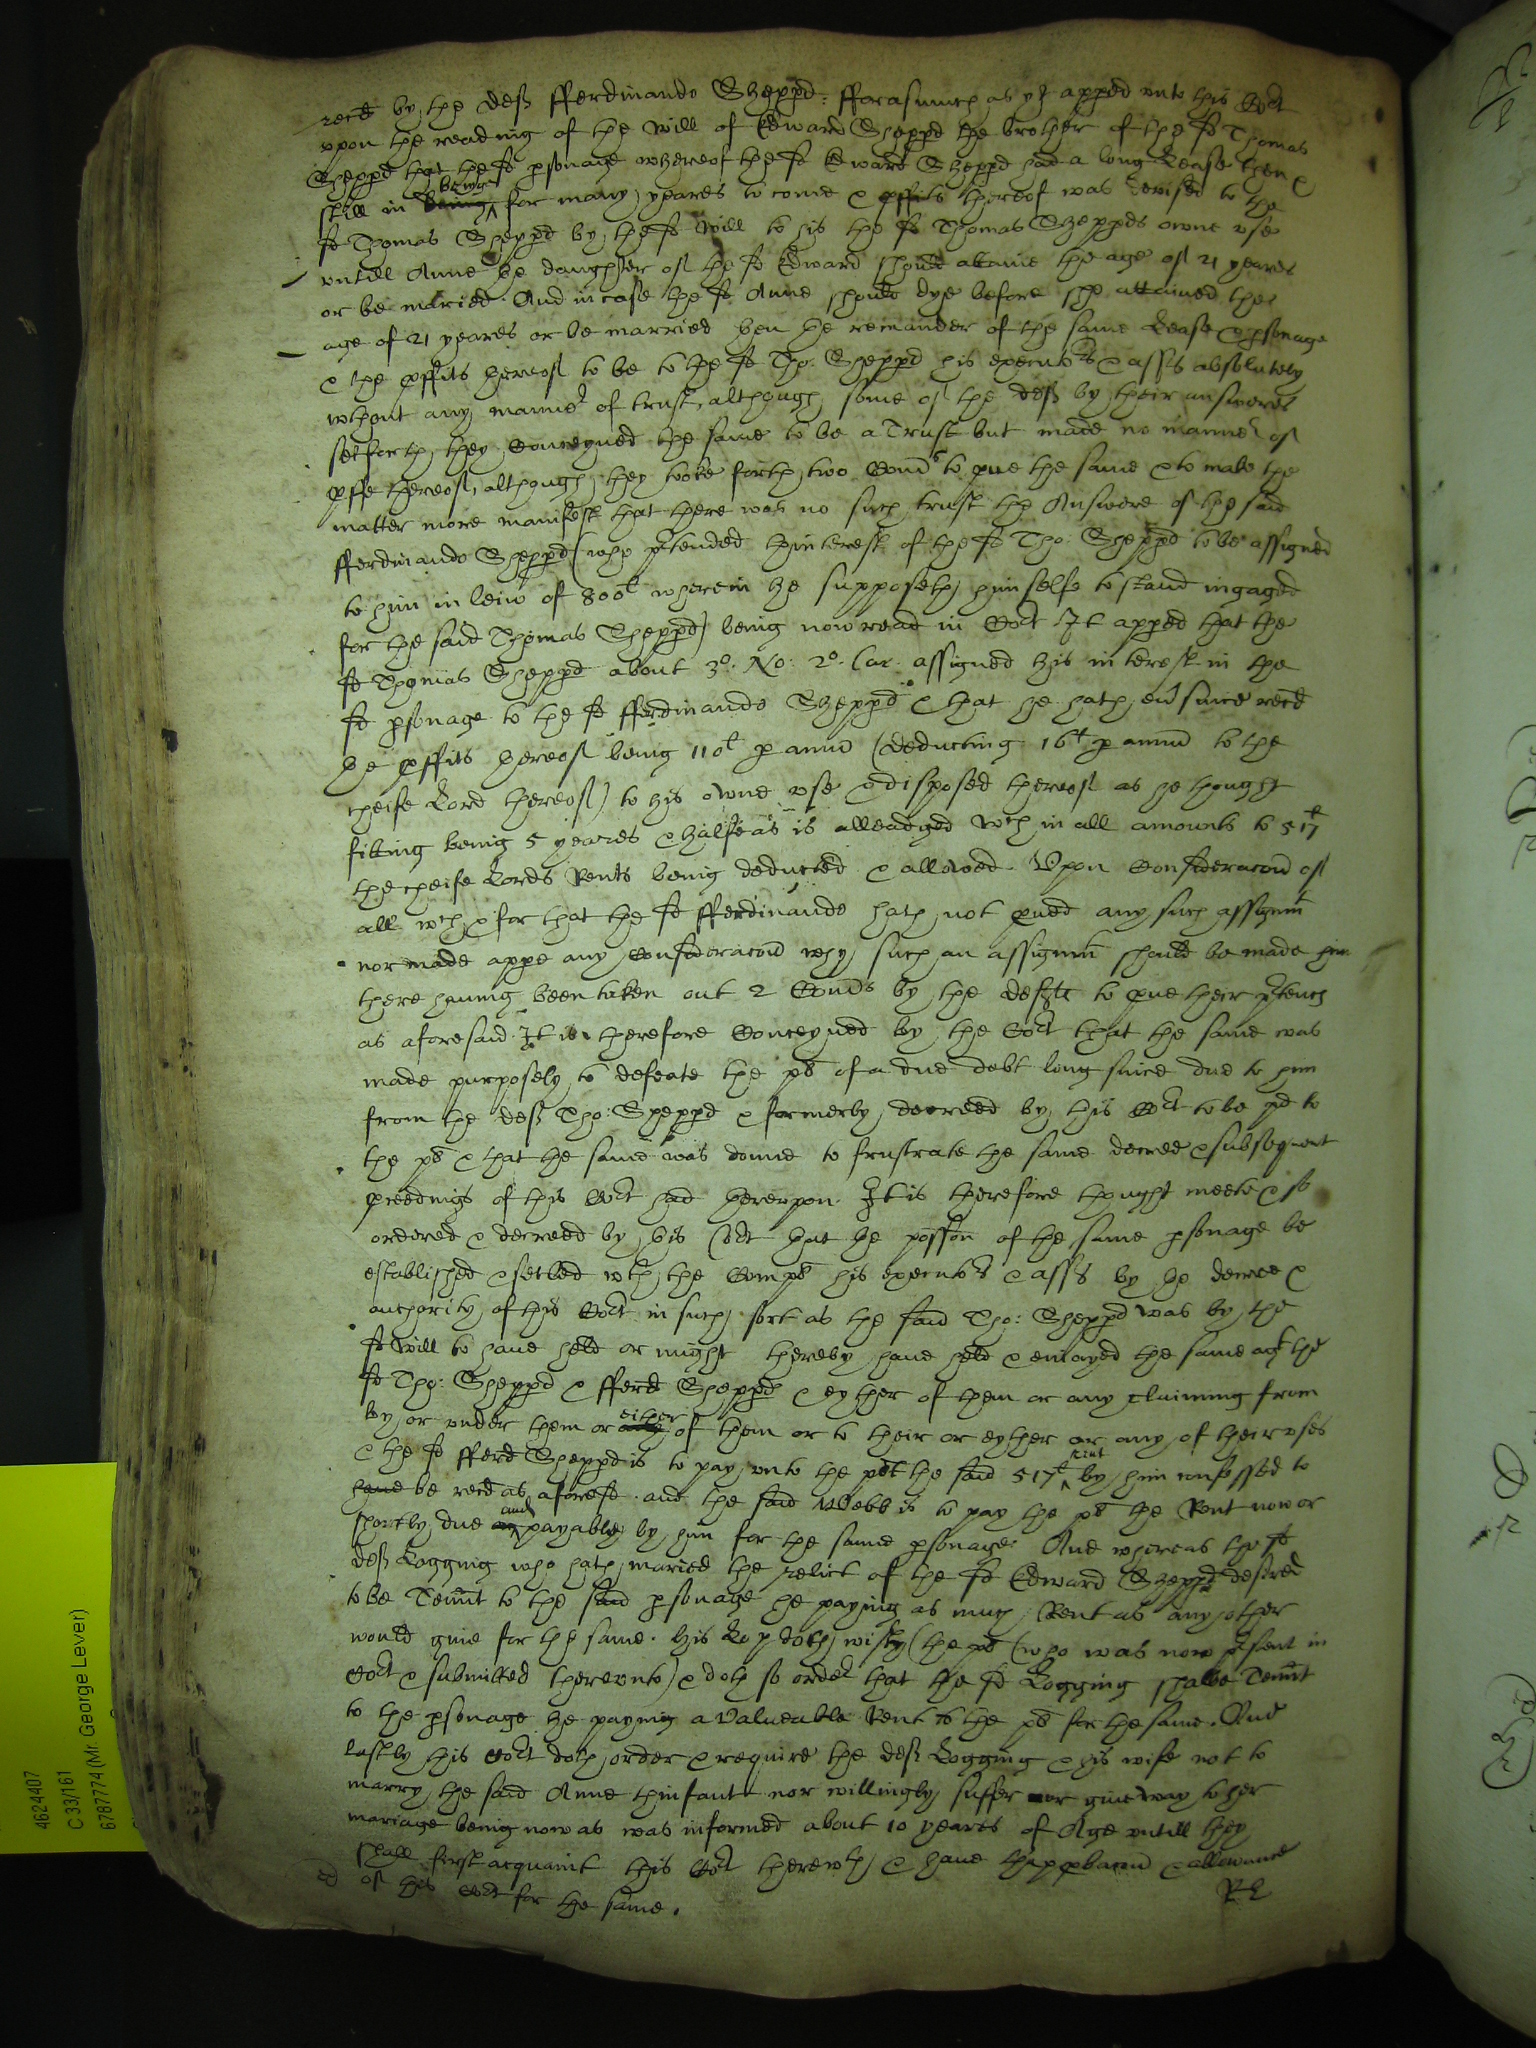 recd by the deft fferdinando Sheppd: fforasmuch as yt apped unto this Cort
upon the reading of the will of Edward Sheppd the brother of the sd Thomas
Sheppd that the sd psonage whereof the sd Edward Sheppd had a long Lease then &
still in being for many yeares to come & pffits thereof was devised to the
sd Thomas Sheppd by the sd will to his the sd Thomas Sheppds owne use
untill Anne the daughter of the sd Edward should attaine the age of 21 yeares
or be maried. And in case the sd Anne should dye before she attained the
age of 21 yeares or be married then the remainder of the same Lease & psonage
& the pffits thereof to be to the sd Tho: Sheppd his executors & asss absolutely
wthout any manner of trust, although some of the defts by their answeres
setforth they Conceyued the same to be a Trust but made no manner of
pffe thereof, although they tooke forth two Comrs to pve the same & to make the
matter more manifest that there was no such trust the Answere of the said
fferdinando Sheppd (who ptended thinterest of the sd Tho: Sheppd to be assigned
to him in leiw of 800l wherein he supposeth himselfe to stand ingaged
for the said Thomas Sheppd) being now read in Cort It apped that the
sd Thomas Sheppd about 3o. No: 2o. Car. assigned his interest in the
sd psonage to the sd fferdinando Sheppd & that he hath eu since recd
the pffits thereof being 110l p annu (deducting 16l p annu to the
cheife Lord thereof) to his owne use & disposed thereof as he thought
fitting being 5 yeares & halfe as is alleadged wch in all amounts to 517l
the cheife Lords Rents being deducted & allowed. Upon Consideracon of
all wch & for that the sd fferdinando hath not pued any such assignmt
nor made appe any consideracon why such an assignmt should be made him
there having been taken out 2 Comrs by the defts to pve their ptence
as aforesaid It is therefore Conceyued by the Cort that the same was
made purposely to defeate the pt of a due debt long since due to him
from the deft Tho: Sheppd & formerly decreed by this Cort to be pd to
the pt & that the same was donne to frustrate the same decree & subsequent
pceedings of this Cort had thereupon. It is therefore thought meete & so
ordered & decreed by this Cort that the posson of the same psonage be
established & setled wth the Complt his executors & asss by the decree &
authority of this Cort in such sort as the said Tho: Sheppd was by the
sd will to have held or might thereby have held & enioyed the same agt the
sd Tho: Sheppd & fferd Sheppd & eyther of them or any claiming from
by or under them or either of them or to their or eyther or any of their uses
& the sd fferd Sheppd is to pay unto the plt the said 517l by him confessed to
have be recd as aforesd. and the said Webb is to pay the pt the Rent now or
shortly due and payable by him for the same psonage And whereas the sd
deft Logging who hath maried the relict of the sd Edward Sheppd desired
to be Tennt to the said psonage he paying as much Rent as any other
would give for the same. his Lop doth wish the pt (who was now psent in
Cort & submitted thereunto) & doth so order that the sd Logging shalbe Tennt
to the psonage he paying a Valueable Rent to the pt for the same. And
lastly this Cort doth order & require the deft Logging & his wife not to
marry the said Anne thinfant nor willingly suffer nor give way to her
mariage being now as was informed about 10 yeares of Age untill they
shall first acquaint this Cort therewth & have thapprobacon & allowance
of this Cort for the same.
R L
4624407
C 33/161
6787774 (Mr. George Lever)